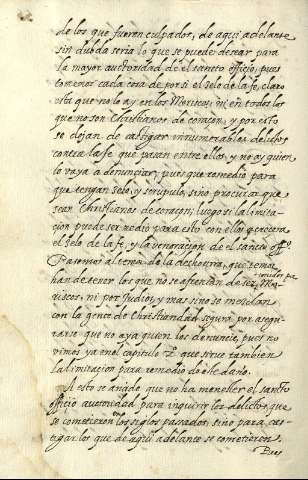 de los que fueren culpados, de aqui adelante
sin dubda seria lo que se puede desear para
la mayor auctoridad de el sancto officio, pues
tomemos cada cosa de por si el zelo de la fe, claro
esta que no lo ay en los Moriscos, ni en todos los
que no son Christianos de coraçon, y por esto
se dejan de castigar innumerables delictos
contra la fe que pasan entre ellos, y no ay quien
lo vaya a denunciar, pues que remedio para
que tengan zelo, y scrupulo, sino procurar que
sean Christianos de coraçon; luego si la limita
cion puede ser medio para esto con ella procura
el zelo de la fe, y la veneracion de el sancto offº.
Pasemos al temor de la deshonra, que temor
han de tener los que no se afrentan de ser Mo
riscos, ni por Judios, y mas sino se mesclan
con la gente de Christiandad segura por asegu
rarse que no aya quien los denuncie, pues no
vimos ya en el capitulo 2 que sirve tambien
la limitacion para remedio de este daño.
A esto se añade que no ha menester el santo
officio auctoridad para inquirir los delictos, que
se cometieron en los siglos pasados, sino para cas
tigar los que de aqui adelante se cometieren.
Pues